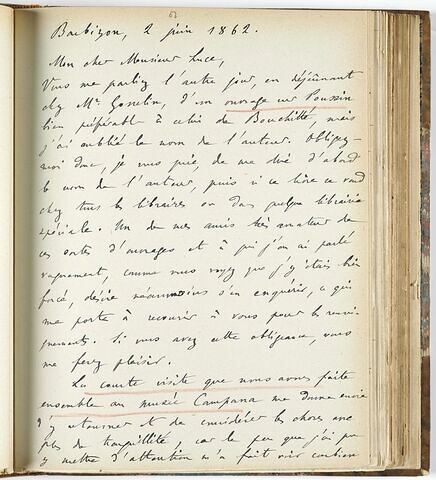 62
Barbizon, 2 juin 1862.
Mon cher Monsieur Luce,
Vous me parliez l'autre jour, en déjeûnant
chez Mr Gosselin, d'un ouvrage sur Poussin
bien préférable à celui de Bouchitté, mais
j'ai oublié le nom de l'auteur. Obligez-
moi donc, je vous prie, de me dire d'abord
le nom de l'auteur, puis si ce livre se vend
chez tous les libraires ou dans quelque librairie
spéciale. Un de mes amis très amateur de
ces sortes d'ouvrages et à qui j'en ai parlé
vaguement, comme vous voyez que j'y étais bien
forcé, désire néanmoins s'en enquérir, ce qui
me porte à recourir à vous pour les rensei-
gnements. Si vous avez cette obligeance, vous
me ferez plaisir.
La courte visite que nous avons faite
ensemble au musée Campana me donne envie
d'y retourner et de considérer les choses avec
plus de tranquillité, car le peu que j'ai pu
y mettre d'attention m'a fait voir combien